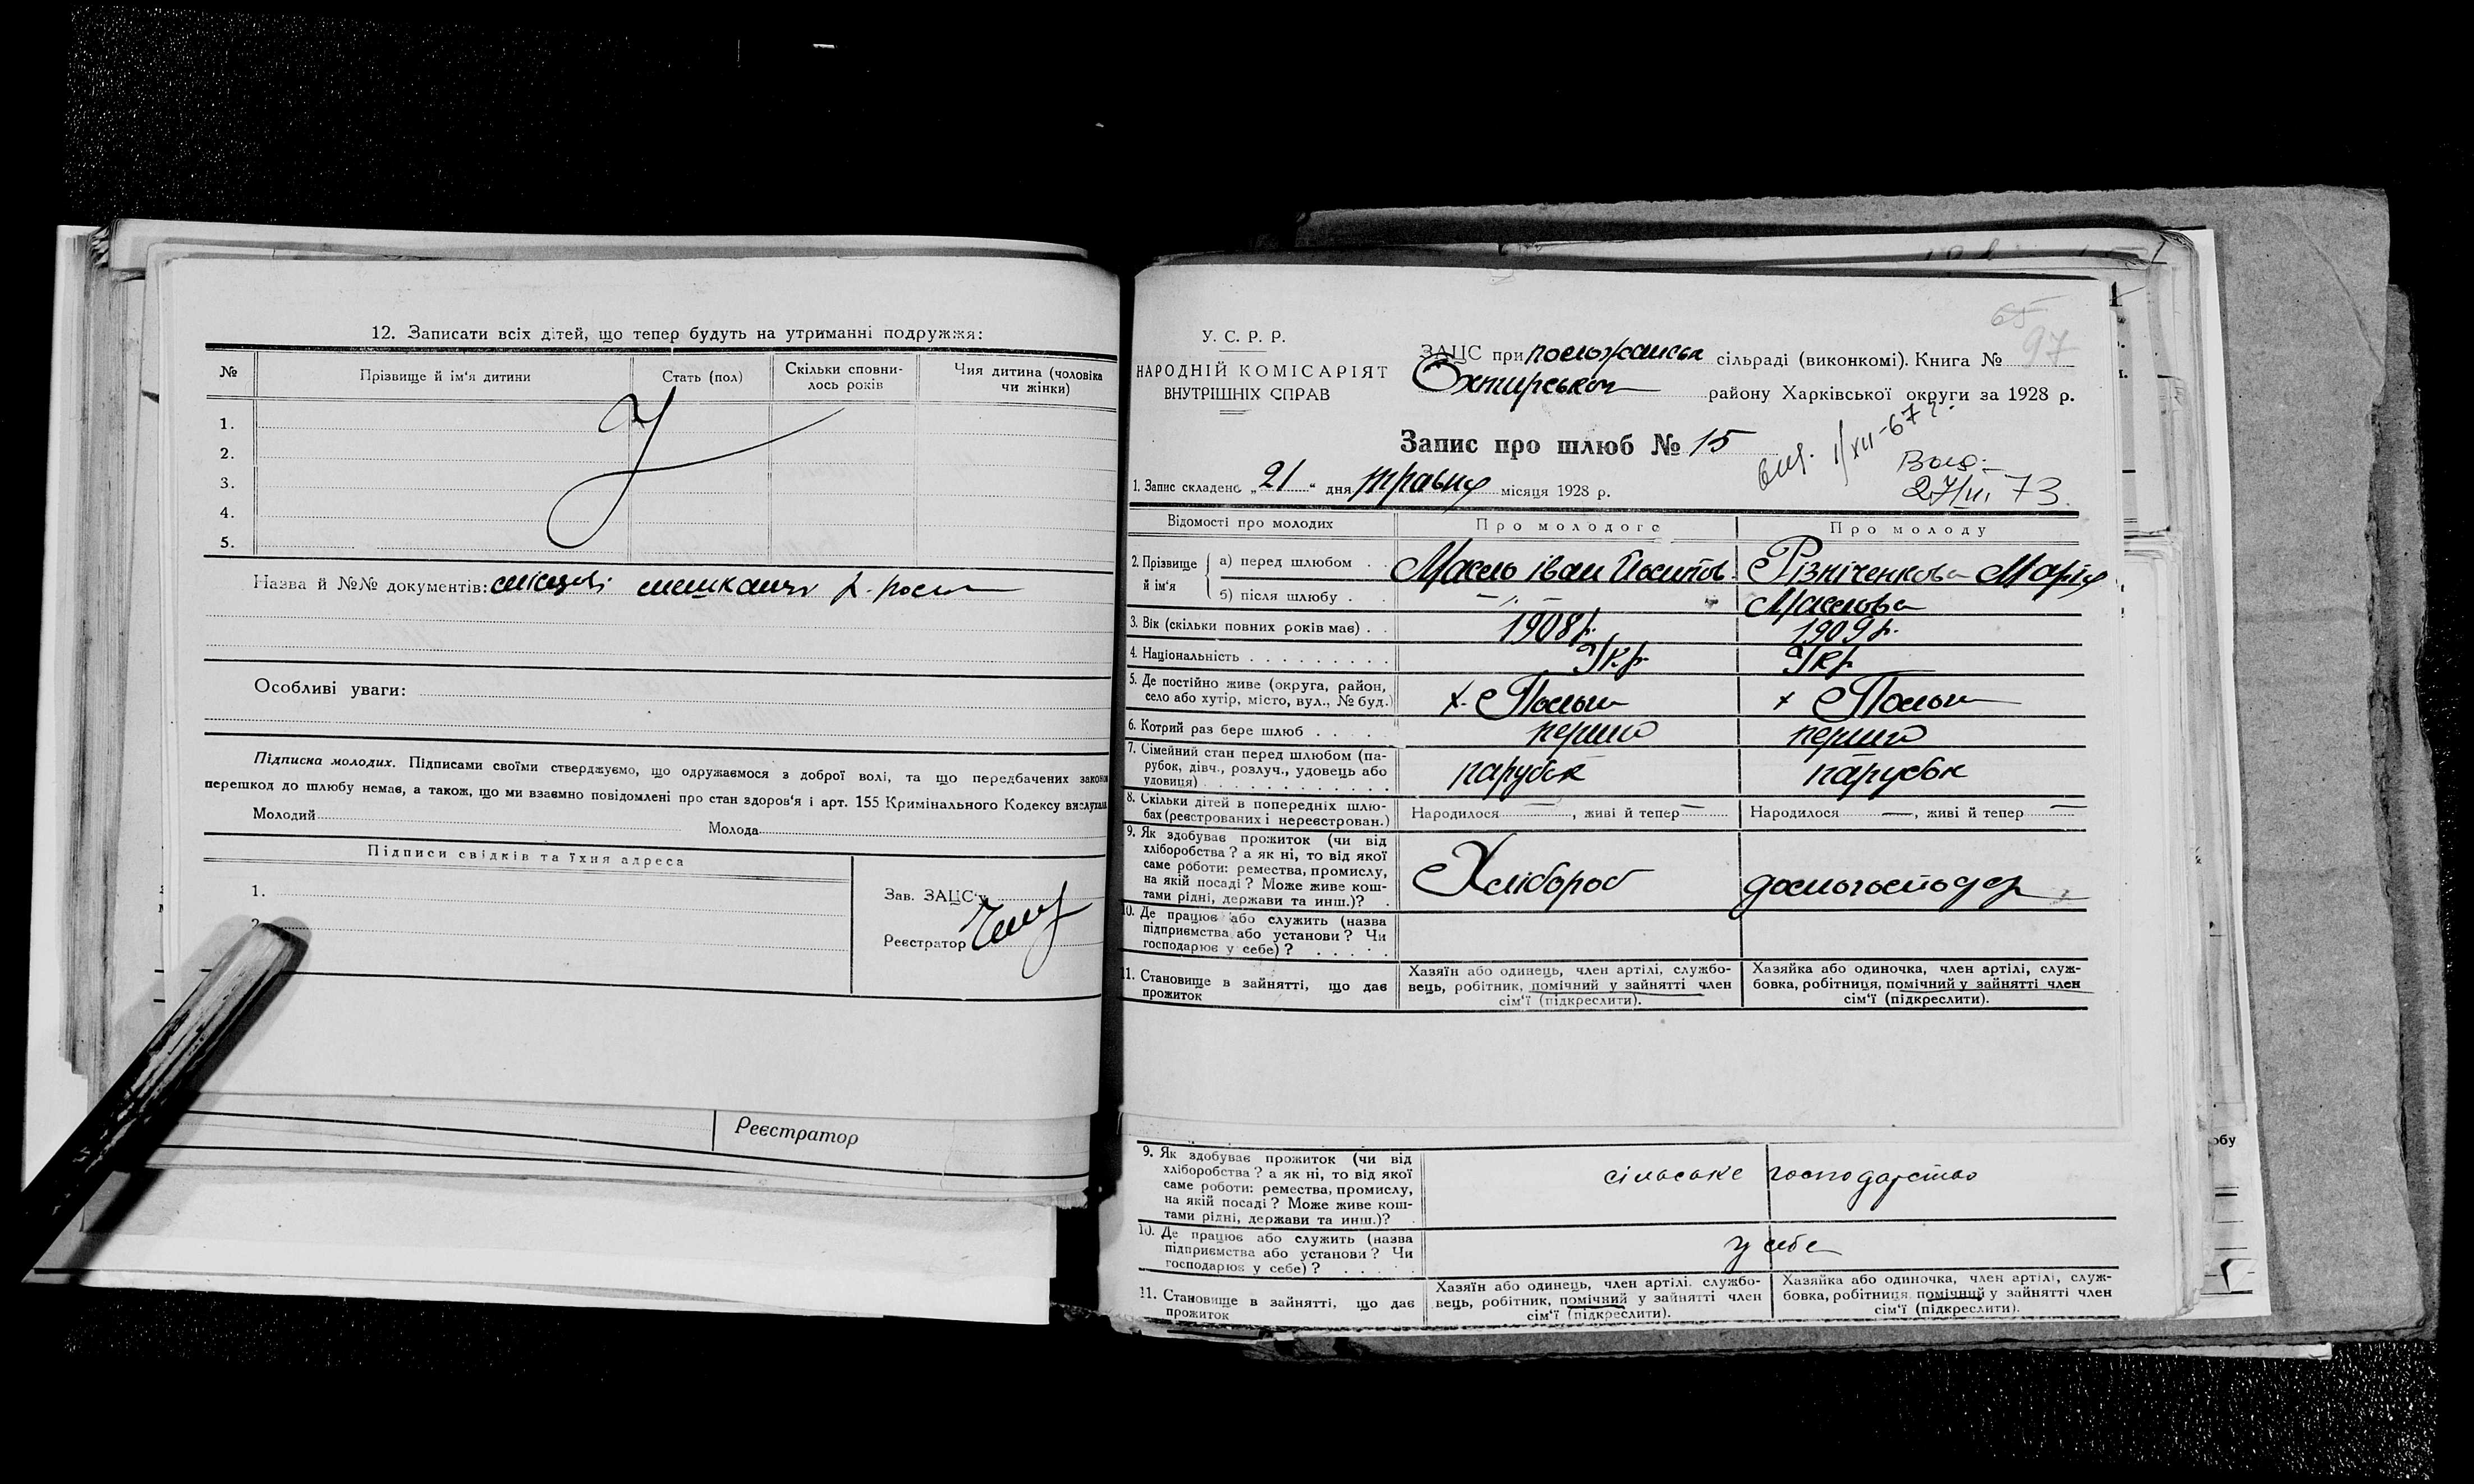 12. Записати всіх дітей, що тепер будуть на утриманні подружжя:
№ Прізвище й ім'я дитини Стать (пол) Скільки сповни-лось років Чия дитина (чоловіка чи жінки)
1.
2.
3.
4.
5.
Назва й №№ документів: місцеві мешканці
Особливі уваги:
Підписка молодих. Підписами своїми стверджуємо, що одружаємося з доброї волі, та що передбачених законом
перешкод до шлюбу немає, а також, що ми взаємно повідомлені про стан здоров'я і арт. 155 Кримінального Кодексу вислухали
Молодий Молода
Підписи свідків та їхня адреса
1.
2.
Зав. ЗАЦС'у
Реєстратор
Реєстратор
У. С. Р. Р.
НАРОДНІЙ КОМІСАРІЯТ
ВНУТРІШНІХ СПРАВ
65
97
ЗАЦС при сільраді (виконкомі). Книга №
району Харківської округи за 1928 р.
Запис про шлюб № 15
вид. 1/XII-67 г.
Выд.
27/III 73.
1. Запис складено „21" дня травня місяця 1928 р.
Відомості про молодих Про молодого Про молоду
2. Прізвище й ім'я а) перед шлюбом Іван Йосипов Різніченкова Марія
б) після шлюбу — „ —
3. Вік (скільки повних років має) 1908 р. 1909 р.
4. Національність Укр. Укр
5. Де постійно живе (округа, район,
село або хутір, місто, вул., № буд.) х. х
6. Котрий раз бере шлюб перший перший
7. Сімейний стан перед шлюбом (па-
рубок, дівч., розлуч., удовець або
удовиця) парубок парубок
8. Скільки дітей в попередніх шлю-
бах (реєстрованих і нереєстрован.) Народилося —, живі й тепер — Народилося —, живі й тепер —
9. Як здобуває прожиток (чи від
хліборобства? а як ні, то від якої
саме роботи: ремества, промислу,
на якій посаді? Може живе кош-
тами рідні, держави та инш.)? Хлібороб домогосподар
10. Де працює або служить (назва
підприємства або установи? Чи
господарює у себе)?
11. Становище в зайнятті, що дає
прожиток
Хазяїн або одинець, член артілі, службо-
вець, робітник, помічний у зайнятті член
сім'ї (підкреслити).
Хазяйка або одиночка, член артілі, служ-
бовка, робітниця, помічний у зайнятті член
сім'ї (підкреслити).
9. Як здобуває прожиток (чи від
хліборобства? а як ні, то від якої
саме роботи: ремества, промислу,
на якій посаді? Може живе кош-
тами рідні, держави та инш.)? сільське господарство
10. Де працює або служить (назва
підприємства або установи? Чи
господарює у себе)? у себе
11. Становище в зайнятті, що дає
прожиток
Хазяїн або одинець, член артілі, службо-
вець, робітник, помічний у зайнятті член
сім'ї (підкреслити).
Хазяйка або одиночка, член артілі, служ-
бовка, робітниця, помічний у зайнятті член
сім'ї (підкреслити).